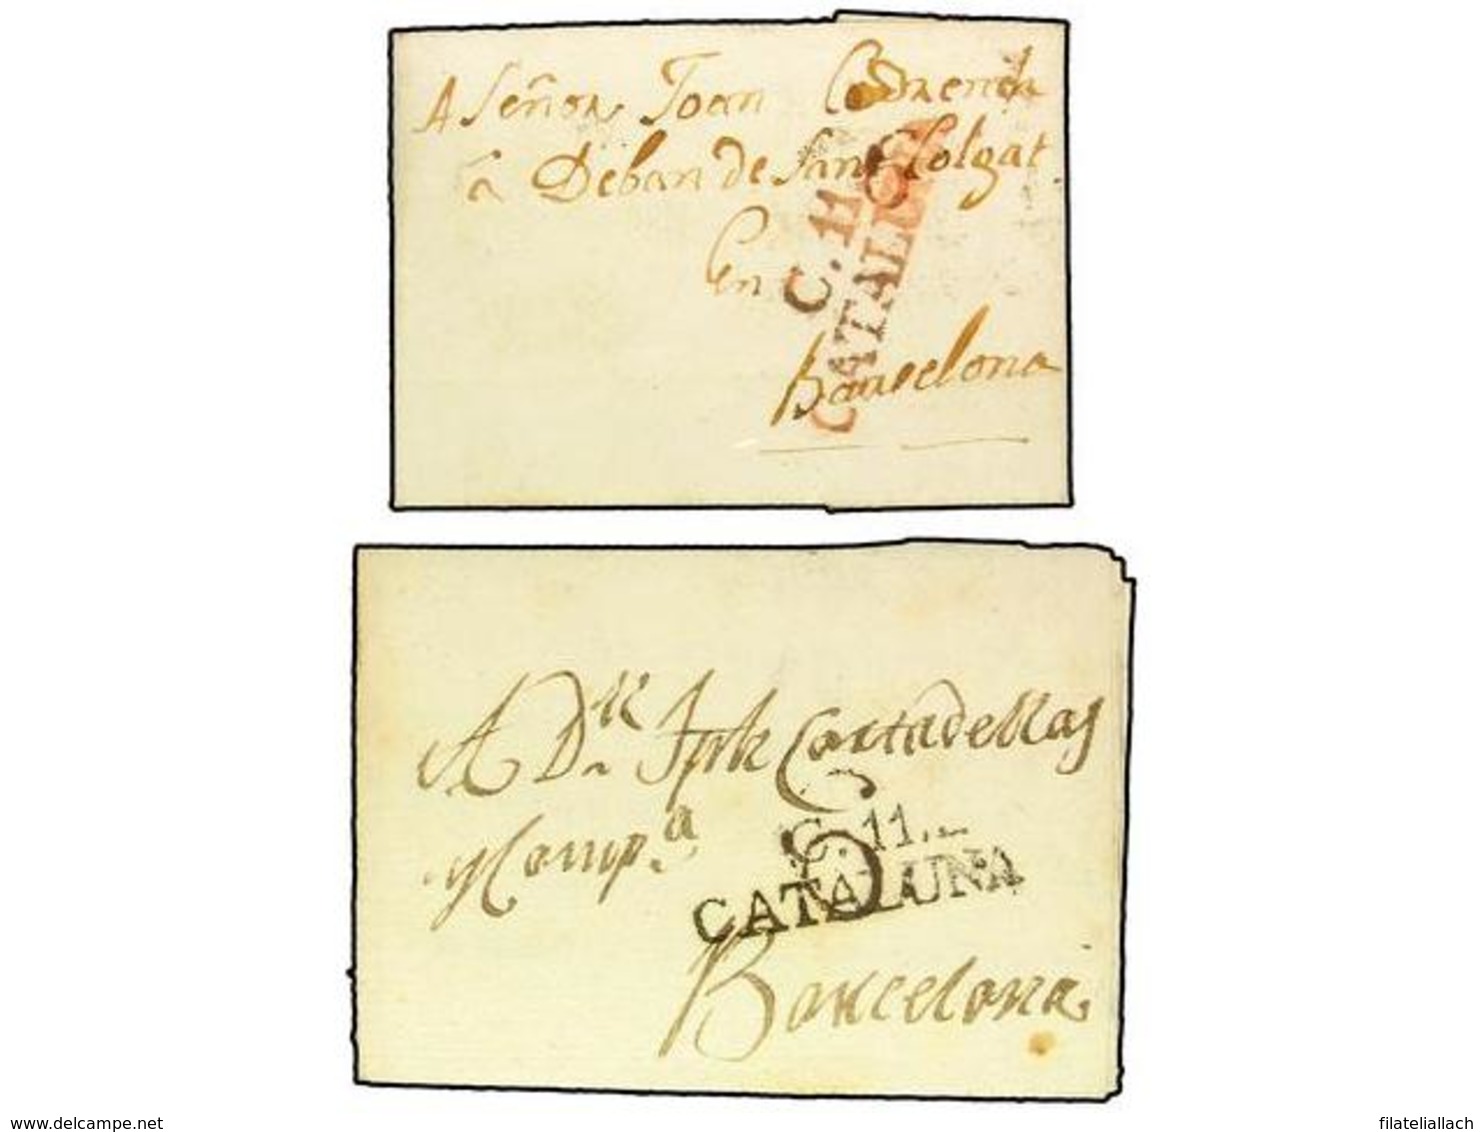 A Señor Joan
â Deban de Sant Colgat
en
Barcelona
C. 11
CATALUÑA
A Dn Jph Cortadellas
y Comp.a
C. 11.
CATALUÑA
Barcelona
www.delcampe.net
filateliallach